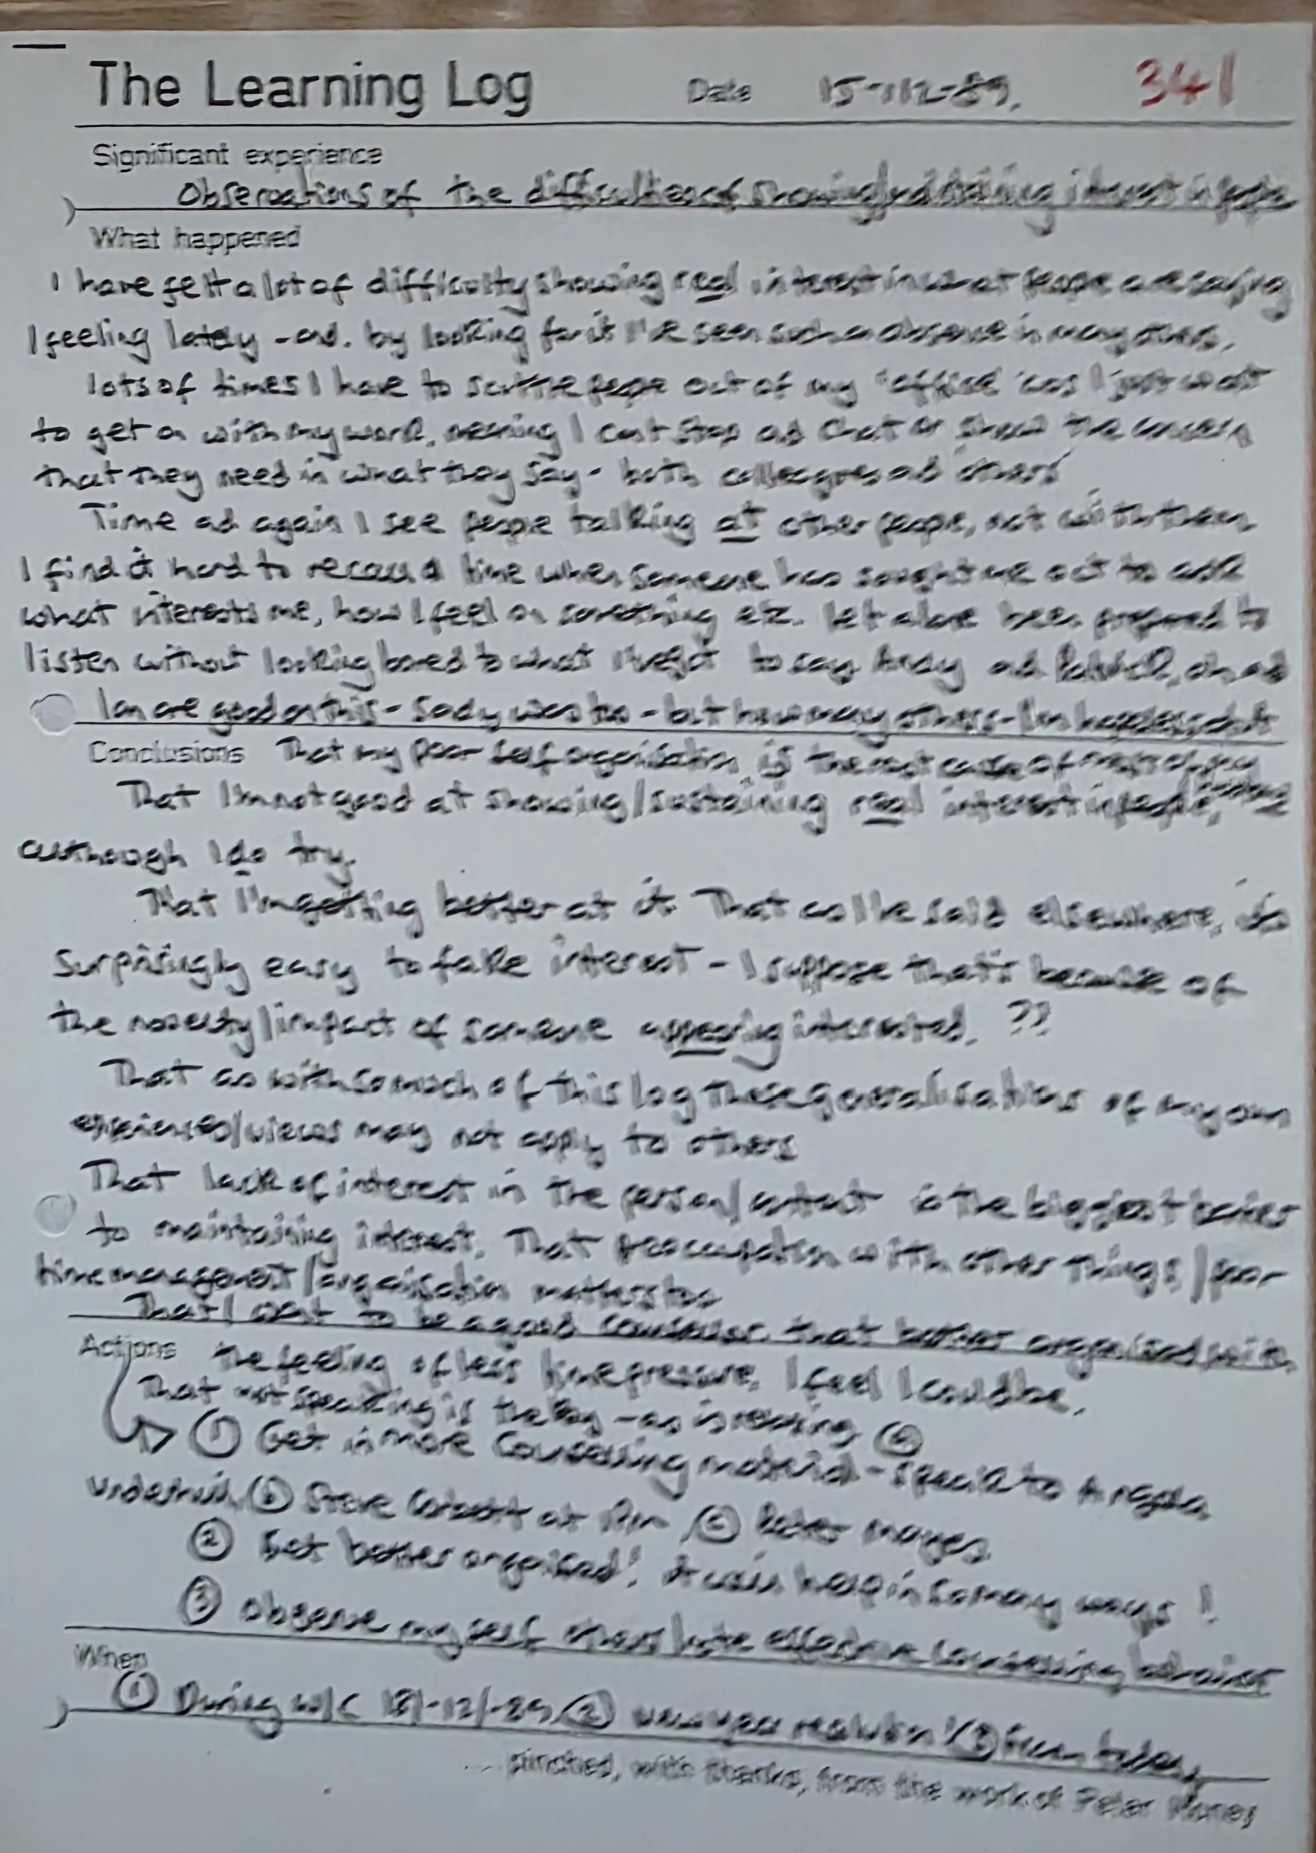 The Learning Log Date 15-12-89. 341
Significant experience
Observations of the difficulties of showing interest in people
What happened
I have felt a lot of difficulty showing real interest in what people are saying
/feeling lately - and. by looking for it I've seen such a absence in many others.
lots of times I have to scuttle people out of my 'office' 'cos I just want
to get on with my work, meaning I can't stop and chat or show the concern
that they need in what they say - both colleagues and others
Time and again I see people talking at other people, not with them
I find it hard to recall a time when someone has sought me out to ask
what interests me, how I feel on something etc. let alone been prepared to
listen without looking bored to what I've got to say. Andy and
Ian are good at this - was too - but how many others - I'm
Conclusions That my poor self organisation is the root cause of
That I'm not good at showing/sustaining real interest in people,
although I do try.
That I'm getting better at it. That as I've said elsewhere, it's
surprisingly easy to fake interest - I suppose that's because of
the novelty/impact of someone appearing interested. ??
That as with so much of this log these generalisations of my own
experiences/views may not apply to others
That lack of interest in the person/content is the biggest barrier
to maintaining interest. That preoccupation with other things/poor
time management/organisation matters too
That I want to be a good counsellor, that better organised with
Actions the feeling of less time pressure, I feel I could be.
That not speaking is the key - as is
① Get in more Counselling material - speak to Angela
ⓑ Steve at ⓒ Peter
② Get better organised! It will help in so many ways!
③ Observe myself others effective counselling behaviour
When
① During w/c 18-12-89 ② new year resolution! ③ from today
... pinched, with thanks, from the work of Peter Honey